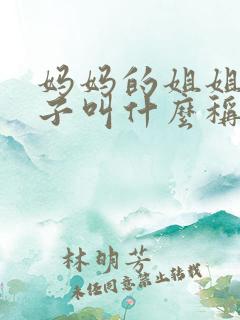 妈妈的姐姐
子叫什麼稱
林明芳
未任同意禁止转载